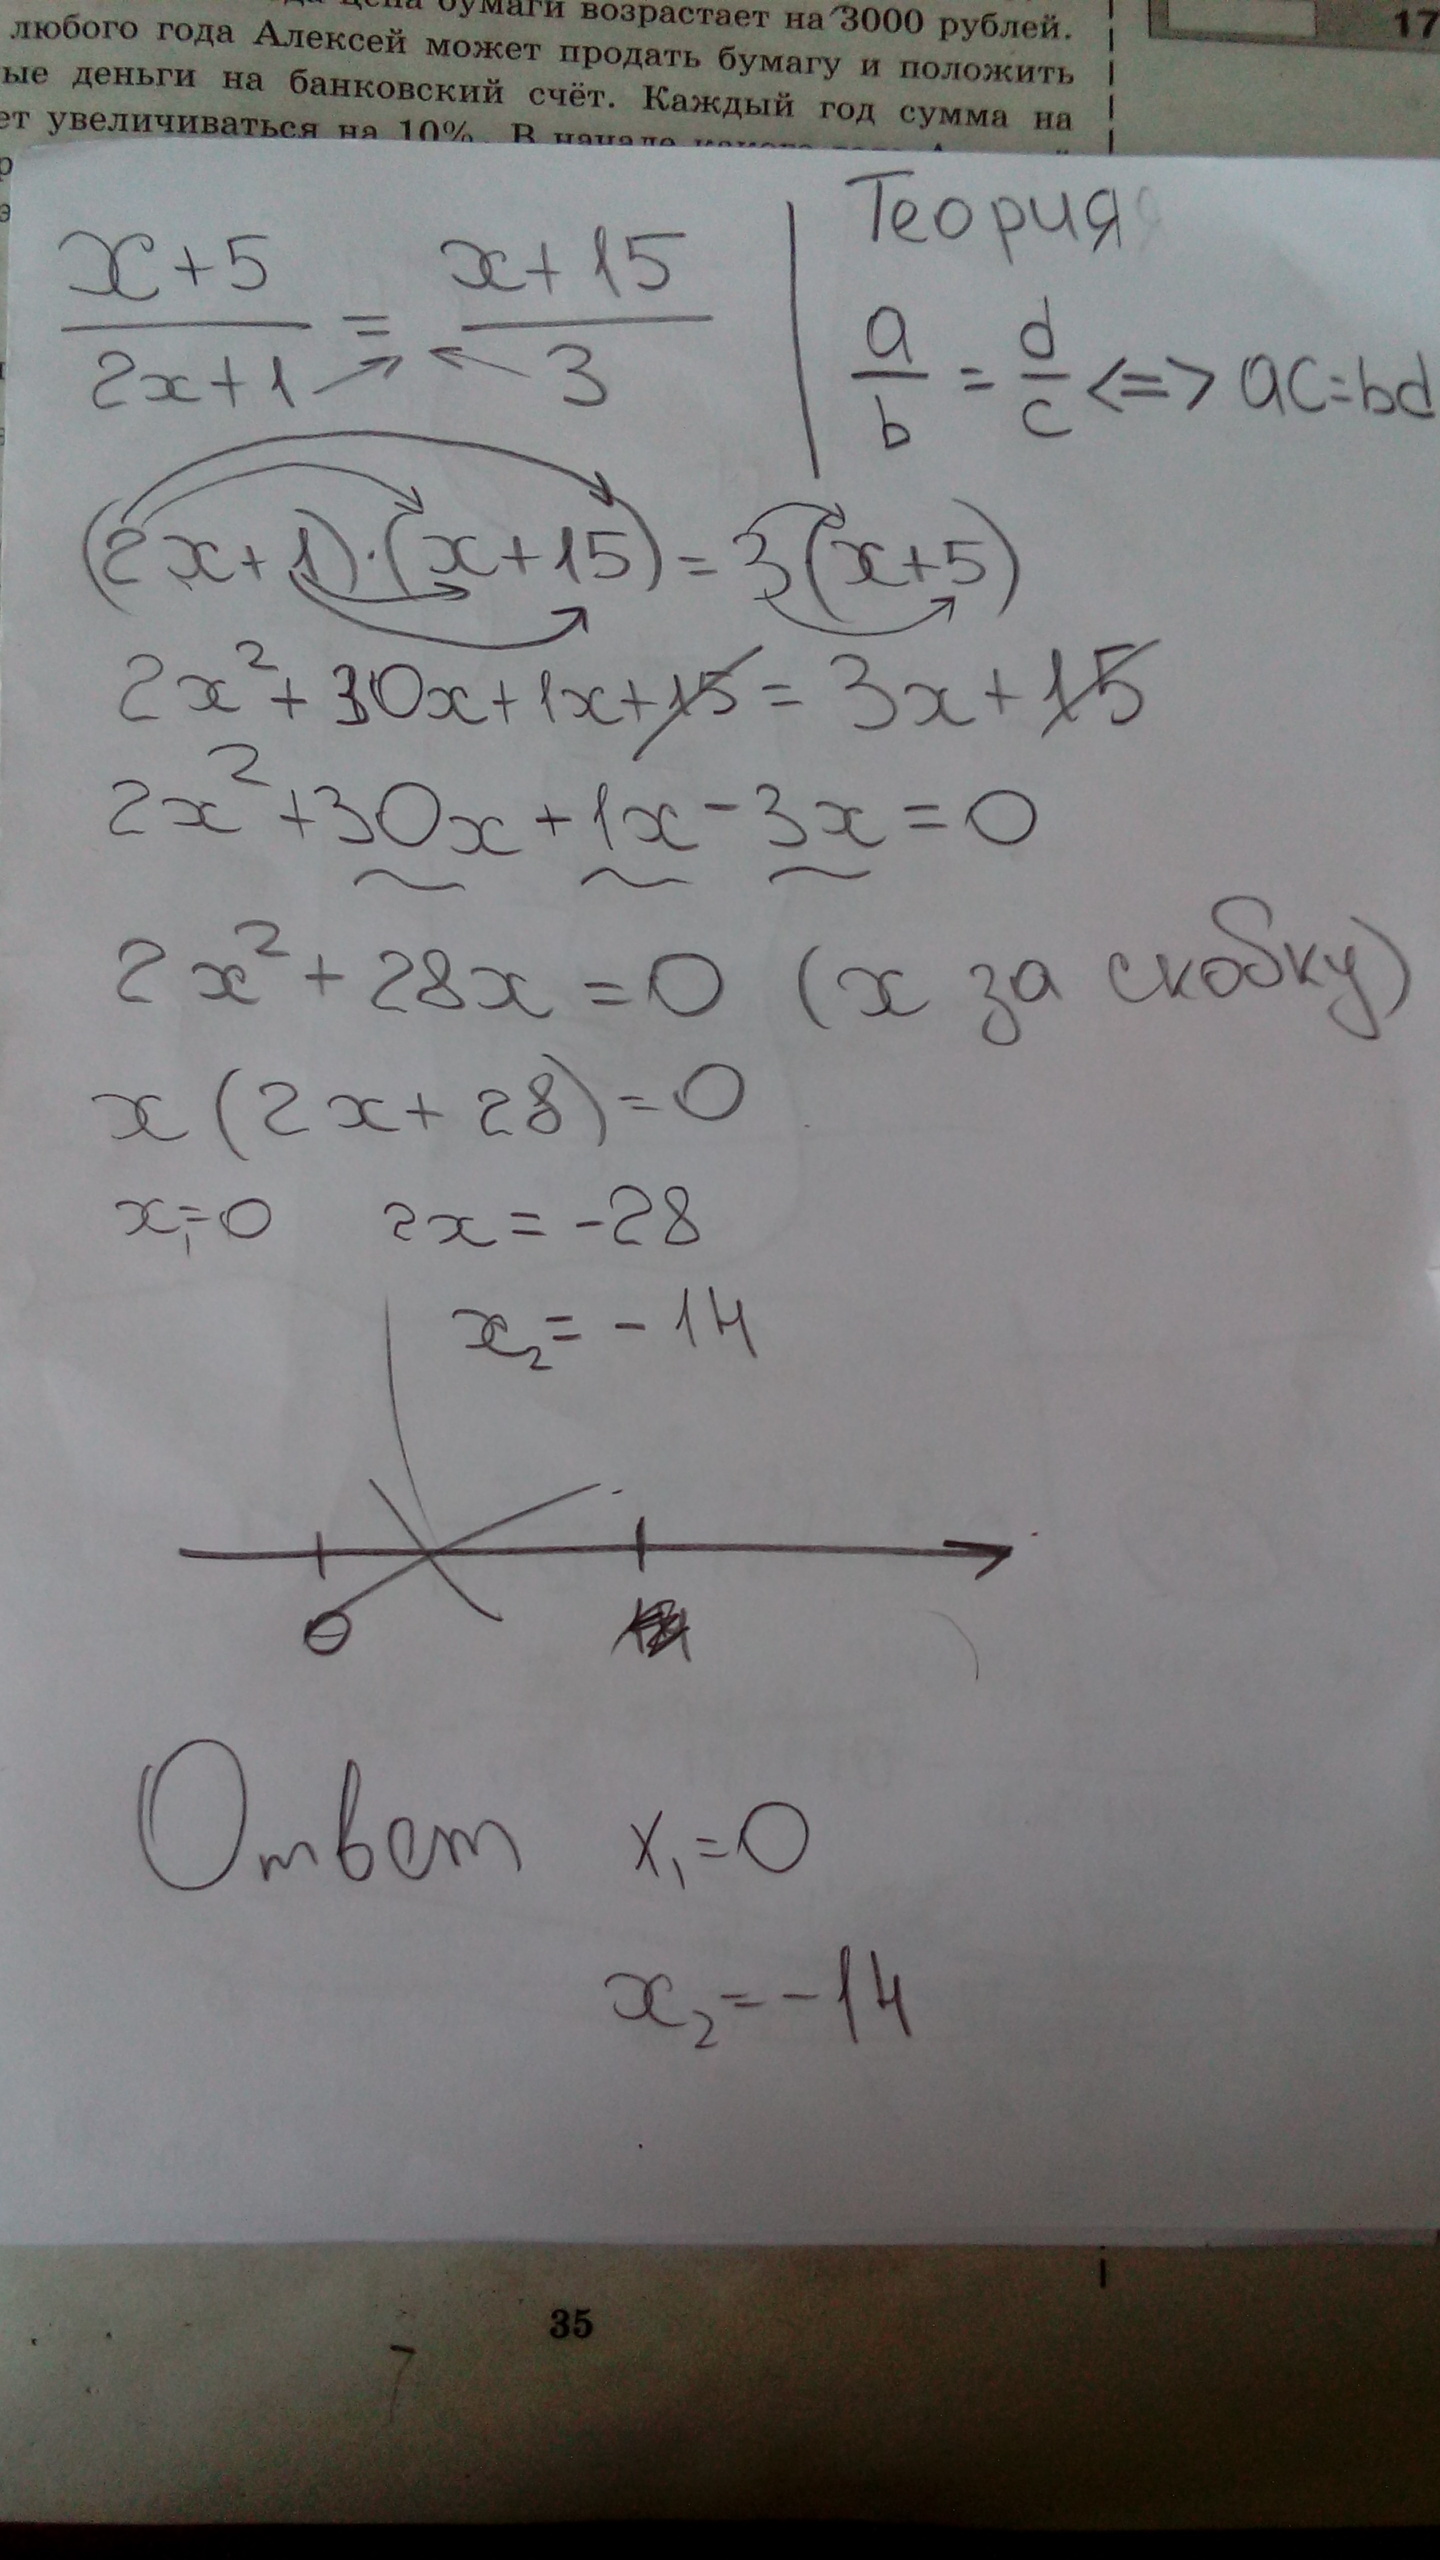 цена бумаги возрастает на 3000 рублей.
любого года Алексей может продать бумагу и положить
ые деньги на банковский счёт. Каждый год сумма на
ет увеличиваться на 10%. В начале
17
Теория
(x+5)/(2x+1) = (x+15)/3
a/b = d/c <=> ac=bd
(2x+1)·(x+15)=3(x+5)
2x²+30x+1x+15=3x+15
2x²+30x+1x-3x=0
2x²+28x=0 (x за скобку)
x(2x+28)=0
x₁=0 2x=-28
x₂=-14
0
Ответ x₁=0
x₂=-14
35